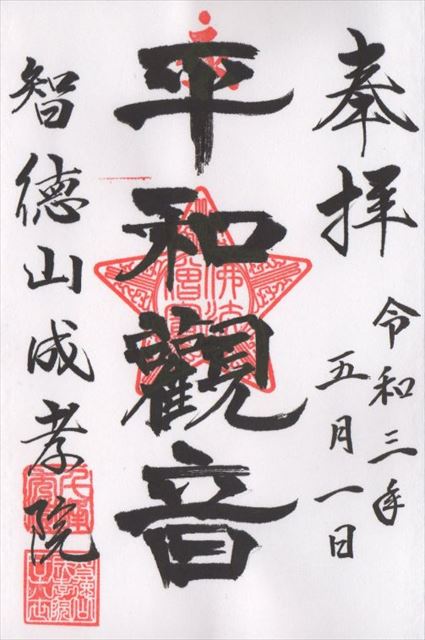 奉拝
令和三年
五月一日
平和觀音
智徳山成孝院